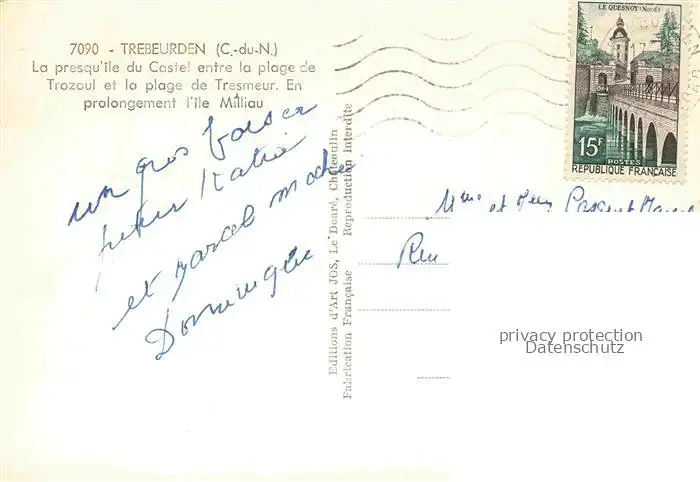 7090 - TREBEURDEN (C.-du-N.)
La presqu'île du Castel entre la plage de
Trozoul et la plage de Tresmeur. En
prolongement l'île Milliau
un gros baiser
et Marcel
Dominique
Editions d'Art JOS, Le Doaré, Châteaulin
Fabrication Française Reproduction Interdite
LE QUESNOY (Nord)
15F
POSTES
REPUBLIQUE FRANÇAISE
Mme et
privacy protection
Datenschutz